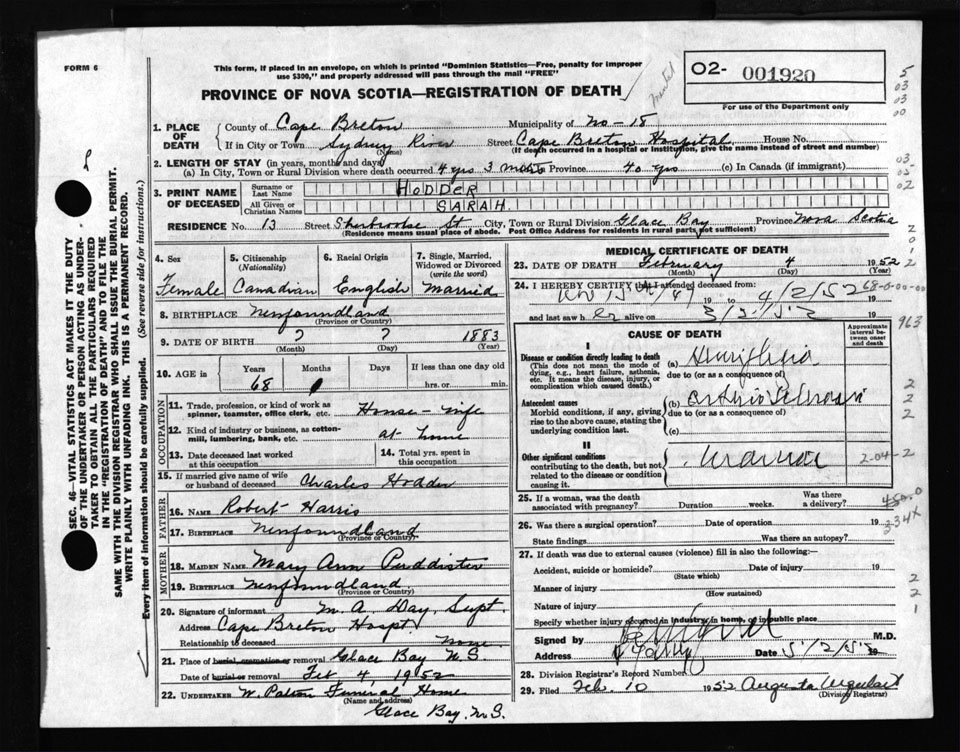 FORM 6
This form, if placed in an envelope, on which is printed "Dominion Statistics—Free, penalty for improper
use $300," and properly addressed will pass through the mail "FREE"
PROVINCE OF NOVA SCOTIA—REGISTRATION OF DEATH
O2- 001920
For use of the Department only
1. PLACE OF DEATH
County of Cape Breton Municipality of No-18
If in City or Town Sydney River Street Cape Breton Hospital House No.
(Name) (If death occurred in a hospital or institution, give the name instead of street and number)
2. LENGTH OF STAY (in years, months and days)
(a) In City, Town or Rural Division where death occurred 4 yrs 3 mos Province 40 yrs (c) In Canada (if immigrant)
3. PRINT NAME OF DECEASED
Surname or Last Name HODDER
All Given or Christian Names SARAH
RESIDENCE No. 13 Street Sherbrooke St City, Town or Rural Division Glace Bay Province Nova Scotia
(Residence means usual place of abode. Post Office Address for residents in rural parts not sufficient)
4. Sex
Female
5. Citizenship (Nationality)
Canadian
6. Racial Origin
English
7. Single, Married, Widowed or Divorced (write the word)
Married
8. BIRTHPLACE Newfoundland
(Province or Country)
9. DATE OF BIRTH ? ? 1883
(Month) (Day) (Year)
10. AGE in Years Months Days If less than one day old
68 hrs. or min.
OCCUPATION
11. Trade, profession, or kind of work as spinner, teamster, office clerk, etc. House-wife
12. Kind of industry or business, as cotton-mill, lumbering, bank, etc. at home
13. Date deceased last worked at this occupation
14. Total yrs. spent in this occupation
15. If married give name of wife or husband of deceased Charles Hodder
FATHER
16. NAME Robert Harris
17. BIRTHPLACE Newfoundland
(Province or Country)
MOTHER
18. MAIDEN NAME Mary Ann Puddister
19. BIRTHPLACE Newfoundland
(Province or Country)
20. Signature of informant M. A. Day, Supt.
Address Cape Breton Hospt
Relationship to deceased None
21. Place of burial, cremation or removal Glace Bay N.S.
Date of burial or removal Feb 4, 1952
22. UNDERTAKER W. Patton Funeral Home
(Name and address)
Glace Bay, N.S.
MEDICAL CERTIFICATE OF DEATH
23. DATE OF DEATH February 4 1952
(Month) (Day) (Year)
24. I HEREBY CERTIFY that I attended deceased from:
19 to 4/2/52
and last saw her alive on 3/2/52
68-0-00-00
CAUSE OF DEATH
Approximate interval between onset and death
I
Disease or condition directly leading to death
(This does not mean the mode of dying, e.g., heart failure, asthenia, etc. It means the disease, injury, or complication which caused death.)
(a) Hemiplegia
due to (or as a consequence of)
Antecedent causes
Morbid conditions, if any, giving rise to the above cause, stating the underlying condition last.
(b)
due to (or as a consequence of)
(c)
II
Other significant conditions
contributing to the death, but not related to the disease or condition causing it.
25. If a woman, was the death associated with pregnancy? Duration weeks. Was there a delivery?
26. Was there a surgical operation? Date of operation 19
State findings Was there an autopsy?
27. If death was due to external causes (violence) fill in also the following:—
Accident, suicide or homicide? Date of injury 19
(State which)
Manner of injury
(How sustained)
Nature of injury
Specify whether injury occurred in industry, in home, or in public place
Signed by M.D.
Address Date 5/2/52 19
28. Division Registrar's Record Number
29. Filed Feb. 10 1952 Augusta Urquhart
(Division Registrar)
SEC. 46—VITAL STATISTICS ACT MAKES IT THE DUTY
OF THE UNDERTAKER OR PERSON ACTING AS UNDER-
TAKER TO OBTAIN ALL THE PARTICULARS REQUIRED
IN THE "REGISTRATION OF DEATH" AND TO FILE THE
SAME WITH THE DIVISION REGISTRAR WHO SHALL ISSUE THE BURIAL PERMIT.
WRITE PLAINLY WITH UNFADING INK. THIS IS A PERMANENT RECORD.
Every item of information should be carefully supplied. (See reverse side for instructions.)
963
2-04-2
234X